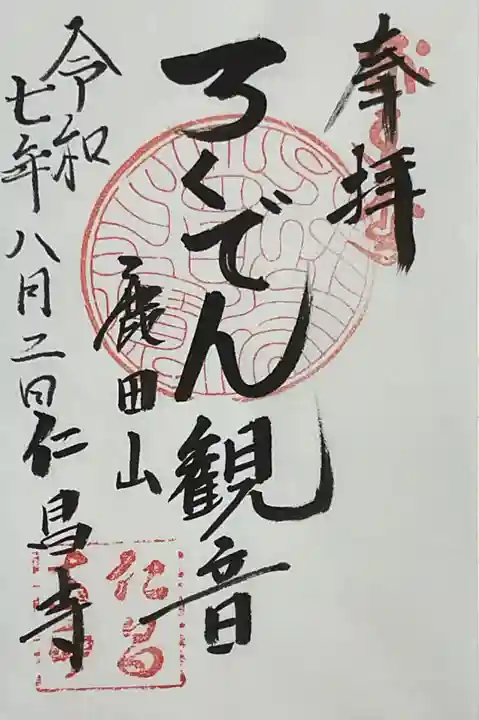 奉拝
ろくでん観音
鹿田山
令和七年八月二日
仁昌寺